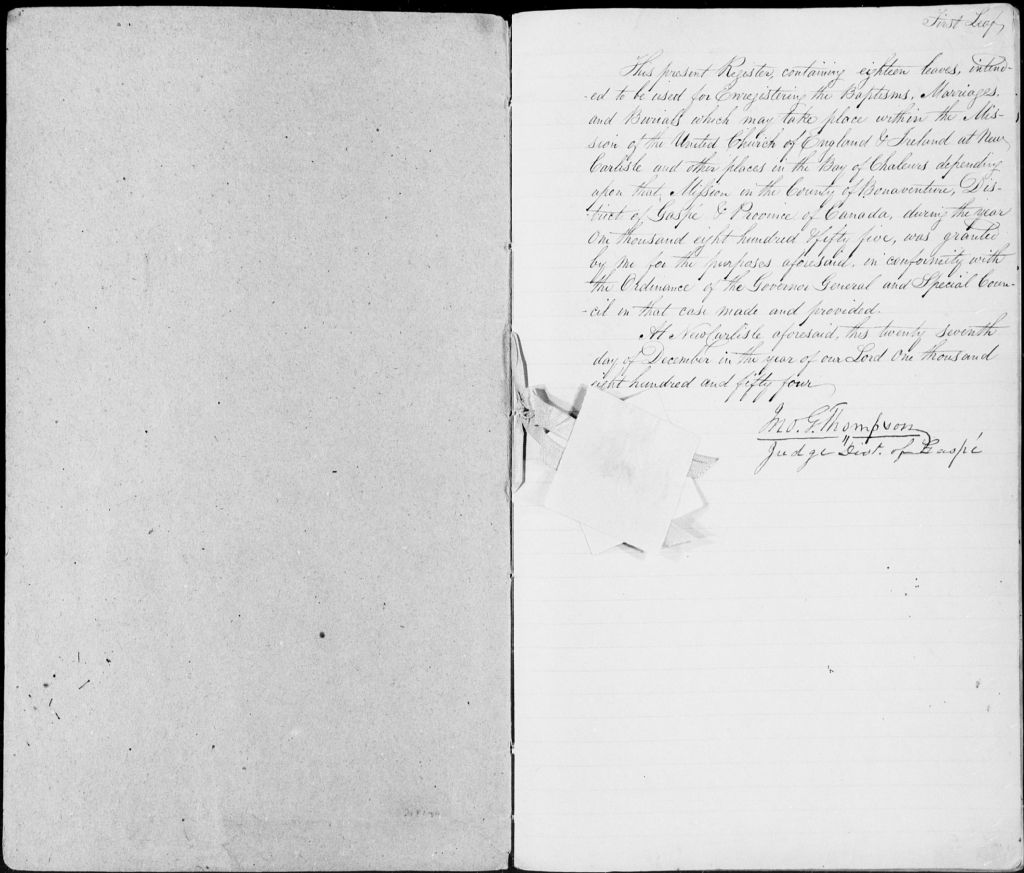 First Leaf,
This present Register, containing eighteen leaves, intend-
-ed to be used for Enregistering the Baptisms, Marriages,
and Burials which may take place within the Mis-
sion of the United Church of England & Ireland at New
Carlisle and other places in the Bay of Chaleurs depending
upon that, Mission in the County of Bonaventure, Dis-
trict of Gaspe & Province of Canada, during the year
One thousand eight hundred & fifty five, was granted
by me for the purposes aforesaid, in conformity with
the Ordinance of the Governor General and Special Coun-
-cil in that case made and provided.
At New Carlisle aforesaid, this twenty seventh
day of December in the year of our Lord One thousand
eight hundred and fifty four
Jno. G. Thompson
Judge Dist. of Gaspé